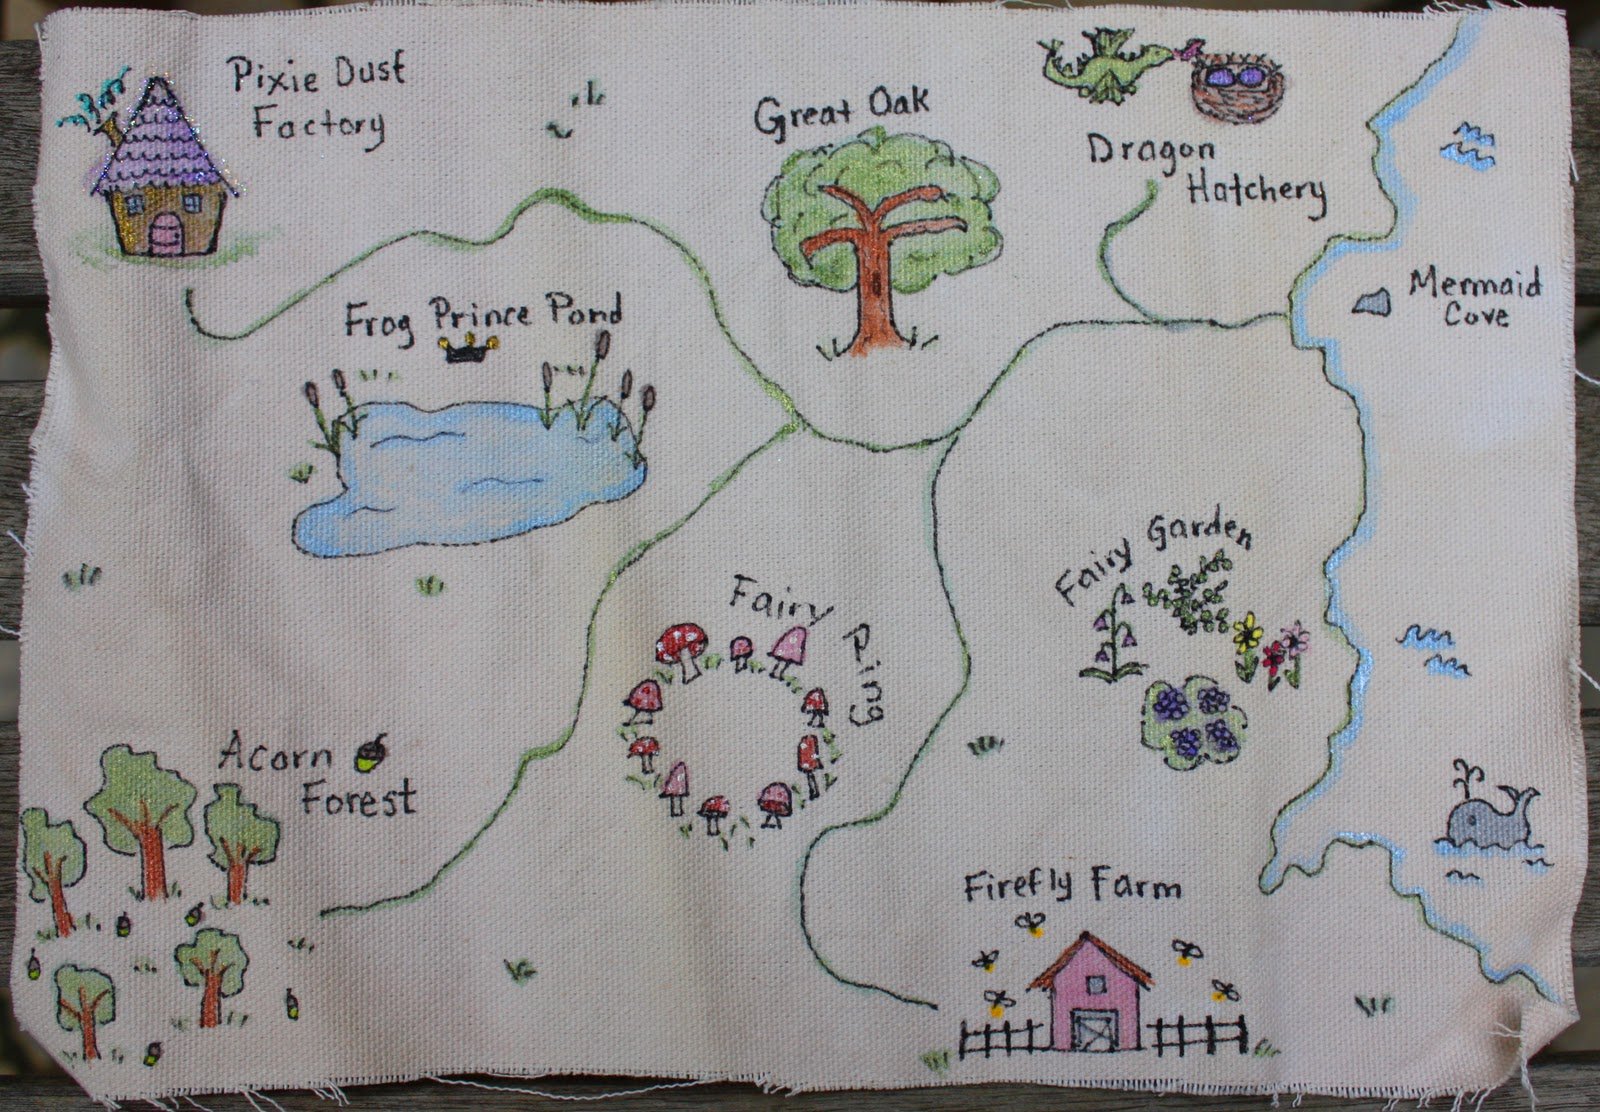 Pixie Dust
Factory
Great Oak
Dragon
Hatchery
Frog Prince Pond
Mermaid
Cove
Fairy Garden
Fairy
Ring
Acorn
Forest
Firefly Farm